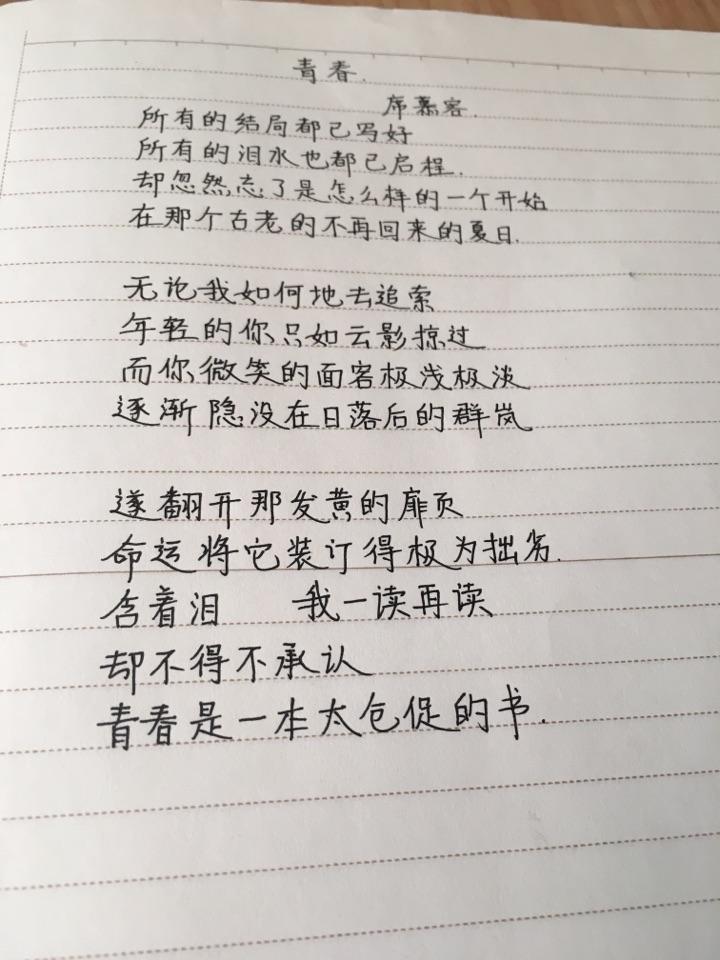 青春.
席慕容.
所有的结局都已写好
所有的泪水也都已启程.
却忽然忘了是怎么样的一个开始
在那个古老的不再回来的夏日.
无论我如何地去追索
年轻的你只如云影掠过
而你微笑的面容极浅极淡
逐渐隐没在日落后的群岚
遂翻开那发黄的扉页
命运将它装订得极为拙劣.
含着泪 我一读再读
却不得不承认
青春是一本太仓促的书.